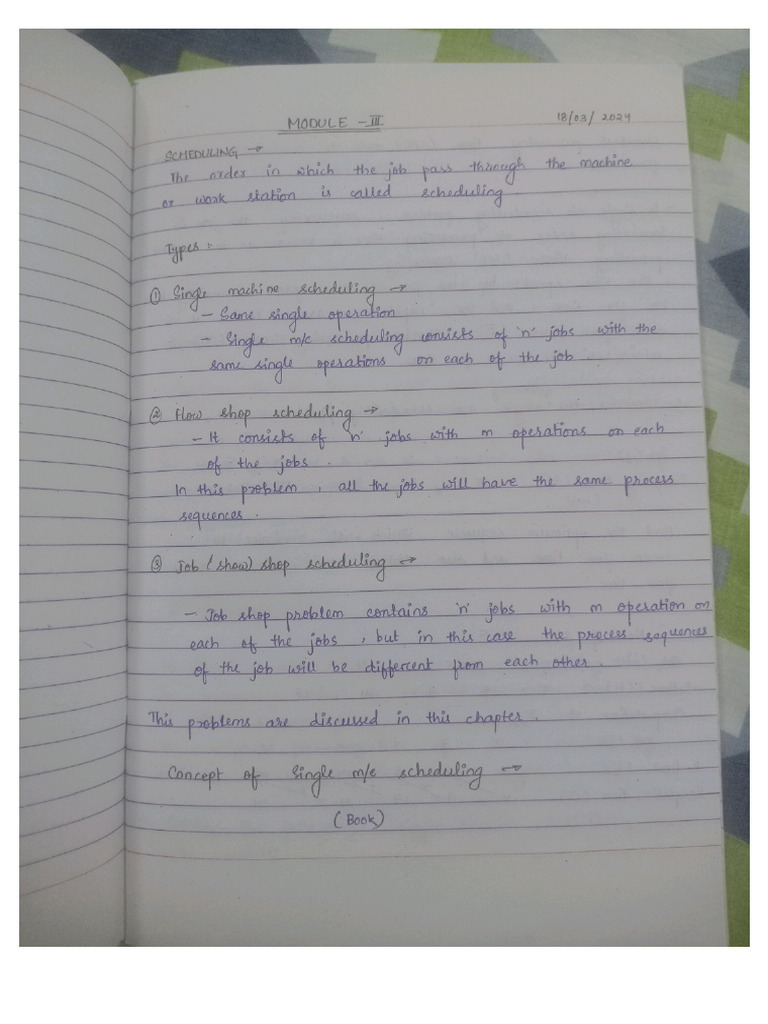 MODULE - III
18/03/2024
SCHEDULING →
The order in which the job pass through the machine
or work station is called scheduling
Types :
① Single machine scheduling →
- Same single operation
- Single m/c scheduling consists of 'n' jobs with the
same single operations on each of the job
② Flow shop scheduling →
- It consists of 'n' jobs with m operations on each
of the jobs .
In this problem , all the jobs will have the same process
sequences .
③ Job (show) shop scheduling →
- Job shop problem contains 'n' jobs with m operation on
each of the jobs , but in this case the process sequences
of the job will be different from each other .
This problems are discussed in this chapter .
Concept of Single m/c scheduling →
(Book)